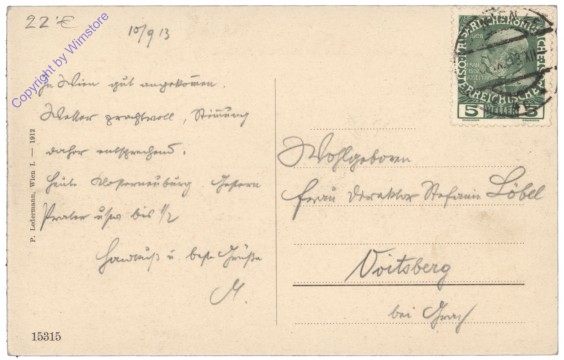 22 €
10/9 13
Copyright by Wimstore
In Wien gut angekommen.
Wetter prachtvoll, Stimmung
daher entsprechend.
Heute Klosterneuburg Gestern
Prater usw bis 1/2
Handkuß u. beste Grüße
M.
P. Ledermann, Wien I. — 1912
15315
WIEN
5 5
Wohlgeboren
Frau Direktor Stefanie Löbel
Voitsberg
bei Graz